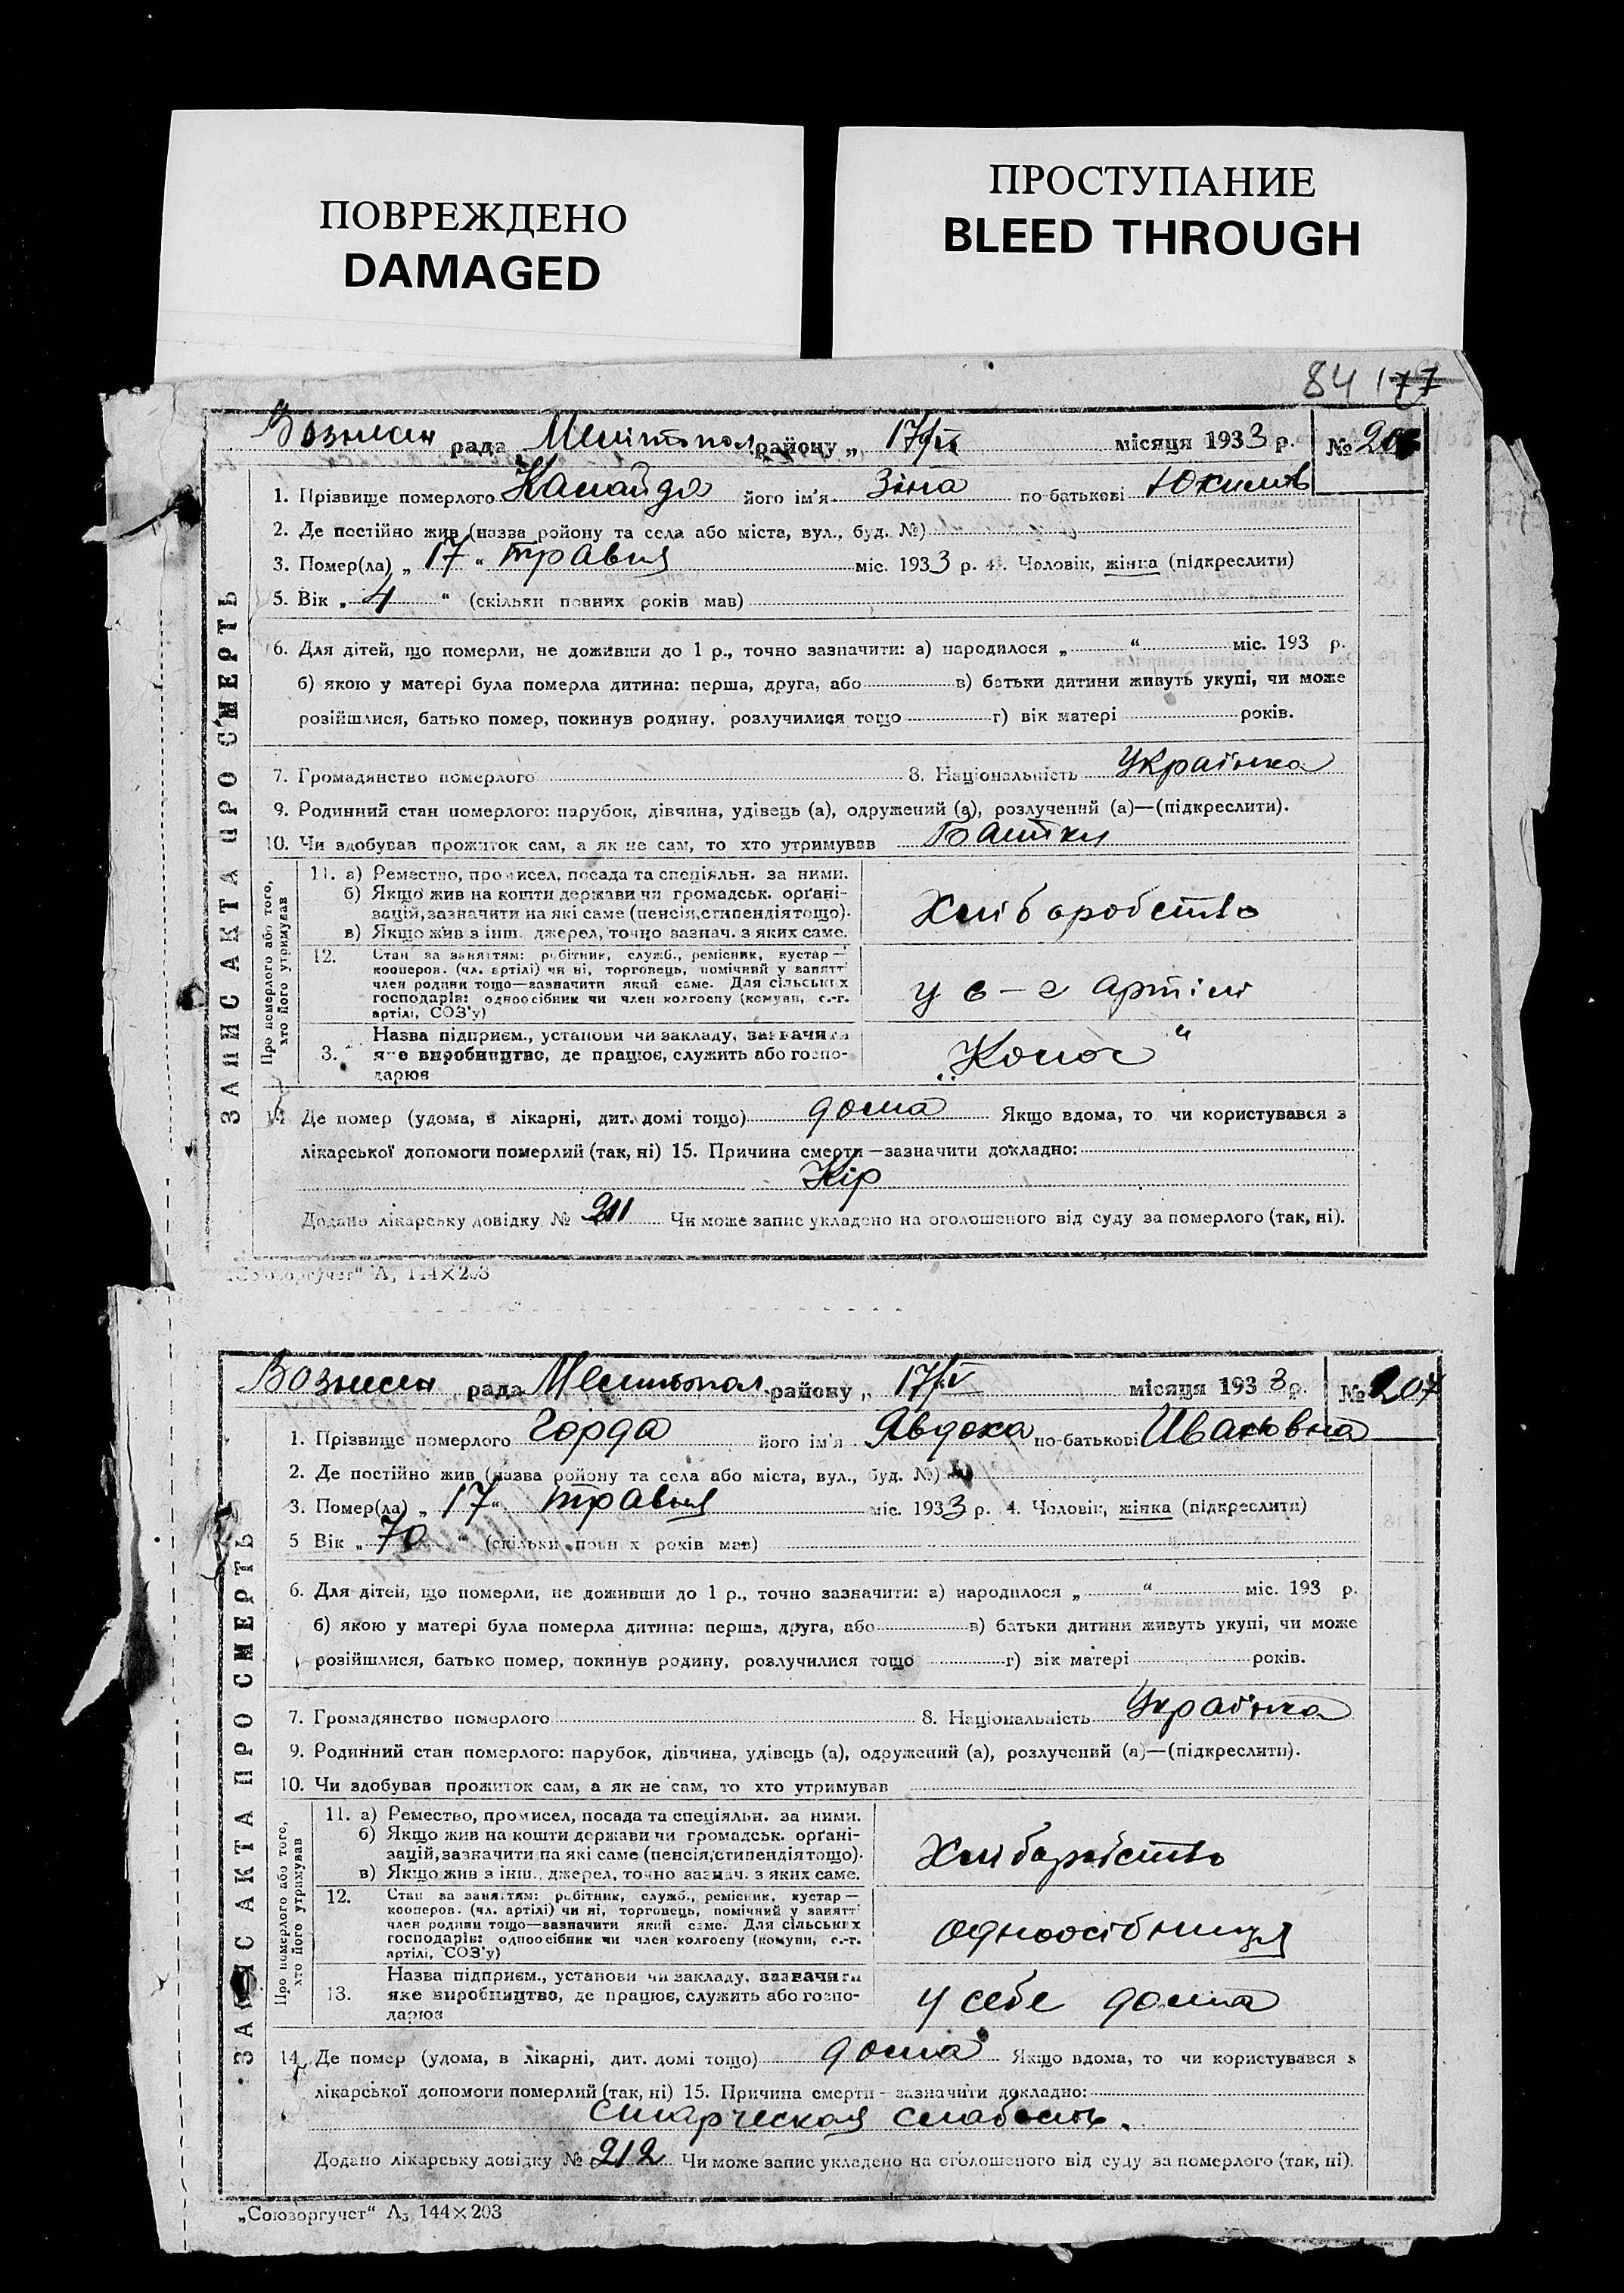 ПОВРЕЖДЕНО
DAMAGED
ПРОСТУПАНИЕ
BLEED THROUGH
84 177
ЗАПИС АКТА ПРО СМЕРТЬ
Вознесен рада Мелітопол району „ 17/V місяця 1933 р. №
1. Прізвище померлого його ім'я Зіна по-батькові
2. Де постійно жив (назва району та села або міста, вул., буд. №)
3. Помер(ла) „ 17 “ травня міс. 1933 р. 4. Чоловік, жінка (підкреслити)
5. Вік „ 4 “ (скільки повних років мав)
6. Для дітей, що померли, не доживши до 1 р., точно зазначити: а) народилося „ “ міс. 193 р.
б) якою у матері була померла дитина: перша, друга, або в) батьки дитини живуть укупі, чи може
розійшлися, батько помер, покинув родину, розлучилися тощо г) вік матері років.
7. Громадянство померлого 8. Національність Українка
9. Родинний стан померлого: парубок, дівчина, удівець (а), одружений (а), розлучений (а)—(підкреслити).
10. Чи здобував прожиток сам, а як не сам, то хто утримував Батьки
Про померлого або того, хто його утримував
11. а) Ремество, промисел, посада та спеціяльн. за ними.
б) Якщо жив на кошти держави чи громадськ. орґані-
зацій, зазначити на які саме (пенсія, стипендія тощо).
в) Якщо жив з інш. джерел, точно зазнач. з яких саме.
Хліборобство
12. Стан за заняттям: робітник, служб., ремісник, кустар—
кооперов. (чл. артілі) чи ні, торговець, помічний у занятті
член родини тощо—зазначити який саме. Для сільських
господарів: одноосібник чи член колгоспу (комуни, с.-г.
артілі, СОЗ'у)
у с-г артілі
3. Назва підприєм., установи чи закладу, зазначити
яке виробництво, де працює, служить або госпо-
дарює
„Колос“
14 Де помер (удома, в лікарні, дит. домі тощо) дома Якщо вдома, то чи користувався з
лікарської допомоги померлий (так, ні) 15. Причина смерти—зазначити докладно:
Кір
Додано лікарську довідку № 211 Чи може запис укладено на оголошеного від суду за померлого (так, ні).
„Союзоргучет“ А₅ 144×203
ЗАПИС АКТА ПРО СМЕРТЬ
Вознесен рада Мелітопол району „ 17/V місяця 1933 р. № 207
1. Прізвище померлого Горда його ім'я Явдоха по-батькові Ивановна
2. Де постійно жив (назва району та села або міста, вул., буд. №)
3. Помер(ла) „ 17 “ травня міс. 1933 р. 4. Чоловік, жінка (підкреслити)
5 Вік „ 70 “ (скільки повн х років мав)
6. Для дітей, що померли, не доживши до 1 р., точно зазначити: а) народилося „ “ міс. 193 р.
б) якою у матері була померла дитина: перша, друга, або в) батьки дитини живуть укупі, чи може
розійшлися, батько помер, покинув родину, розлучилися тощо г) вік матері років.
7. Громадянство померлого 8. Національність Українка
9. Родинний стан померлого: парубок, дівчина, удівець (а), одружений (а), розлучений (а)—(підкреслити).
10. Чи здобував прожиток сам, а як не сам, то хто утримував
Про померлого або того, хто його утримував
11. а) Ремество, промисел, посада та спеціяльн. за ними.
б) Якщо жив на кошти держави чи громадськ. орґані-
зацій, зазначити на які саме (пенсія, стипендія тощо).
в) Якщо жив з інш. джерел, точно зазнач. з яких саме.
Хліборобство
12. Стан за заняттям: робітник, служб., ремісник, кустар—
кооперов. (чл. артілі) чи ні, торговець, помічний у занятті
член родини тощо—зазначити який саме. Для сільських
господарів: одноосібник чи член колгоспу (комуни, с.-г.
артілі, СОЗ'у)
одноосібниця
13. Назва підприєм., установи чи закладу, зазначити
яке виробництво, де працює, служить або госпо-
дарює
у себе дома
14 Де помер (удома, в лікарні, дит. домі тощо) дома Якщо вдома, то чи користувався з
лікарської допомоги померлий (так, ні) 15. Причина смерти—зазначити докладно:
старческая слабость.
Додано лікарську довідку № 212 Чи може запис укладено на оголошеного від суду за померлого (так, ні).
„Союзоргучет“ А₅ 144×203